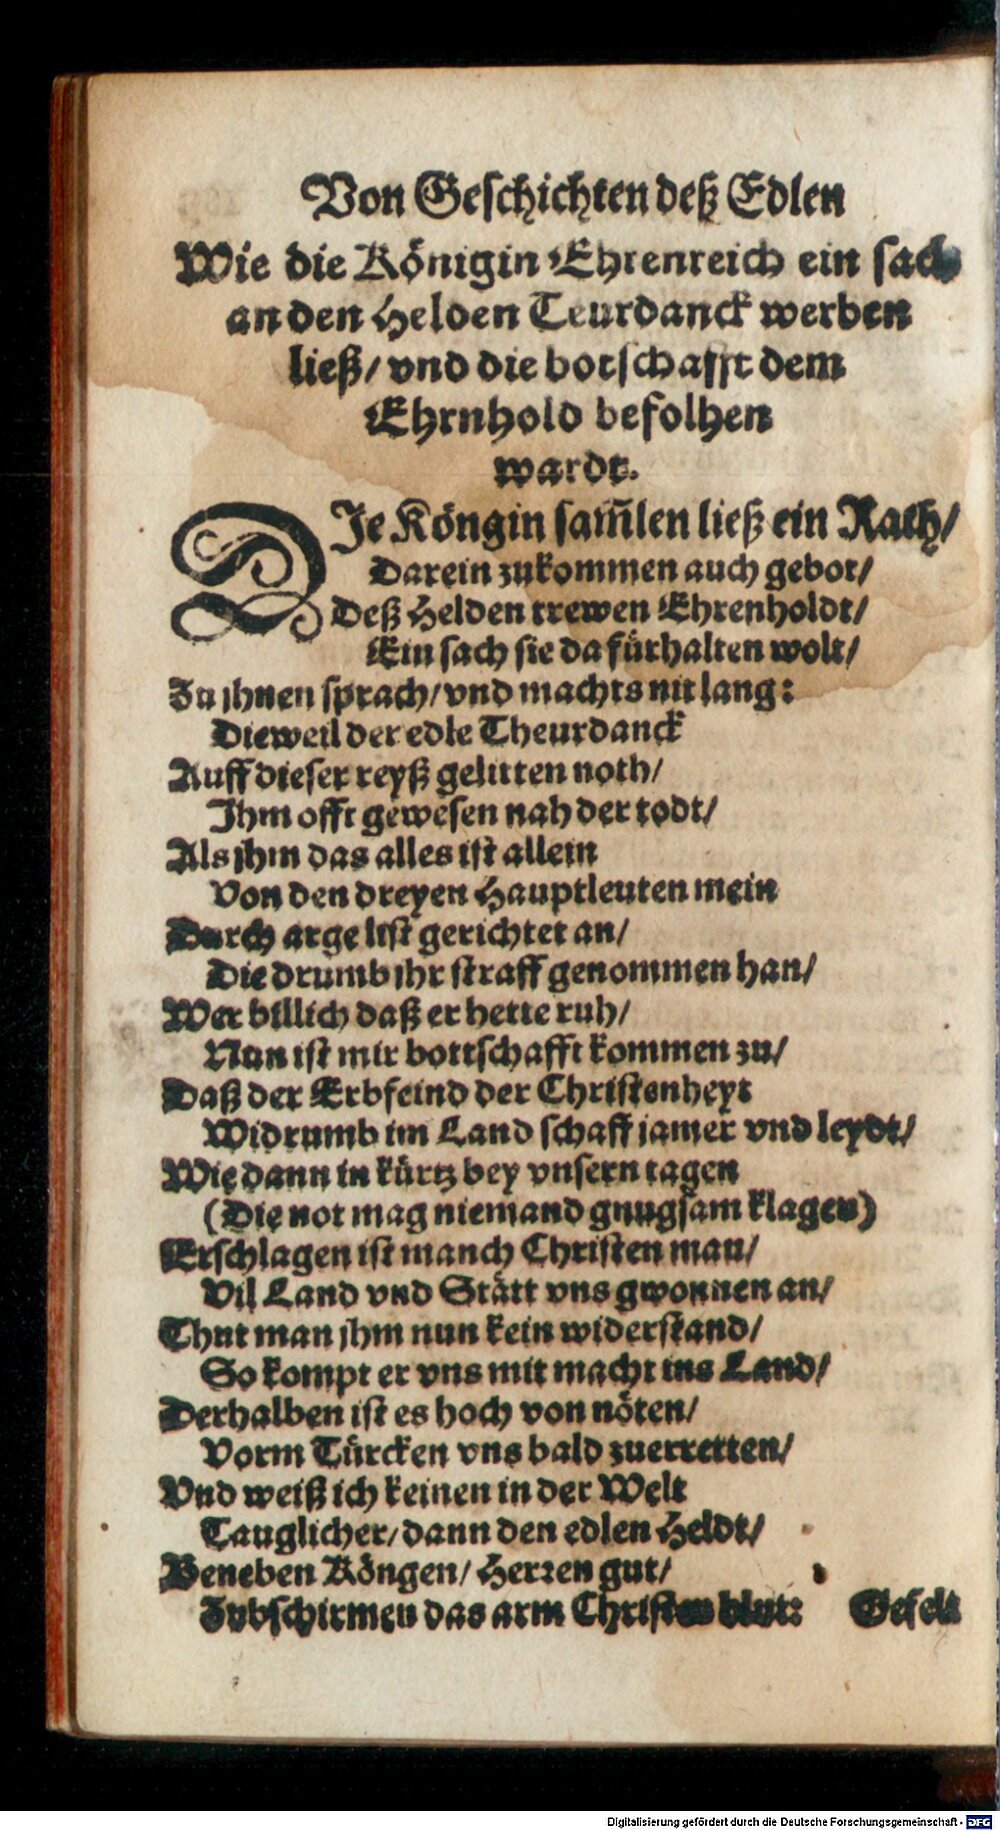 Von Geschichten deß Edlen
Wie die Königin Ehrenreich ein sach
an den Helden Teurdanck werben
ließ/ vnd die botschafft dem
Ehrnhold befolhen
wardt.
DIe Köngin sam̃len ließ ein Rath/
Darein zukommen auch gebot/
Deß Helden trewen Ehrenholdt/
Ein sach sie da fürhalten wolt/
Zu jhnen sprach/ vnd machts nit lang:
Dieweil der edle Theurdanck
Auff dieser reyß gelitten noth/
Ihm offt gewesen nah der todt/
Als jhm das alles ist allein
Von den dreyen Hauptleuten mein
Durch arge list gerichtet an/
Die drumb jhr straff genommen han/
Wer billich daß er hette ruh/
Nun ist mir bottschafft kommen zu/
Daß der Erbfeind der Christenheyt
Widrumb im Land schaff jamer vnd leydt/
Wie dann in kürtz bey vnsern tagen
(Die not mag niemand gnugsam klagen)
Erschlagen ist manch Christen man/
Vil Land vnd Stätt vns gwonnen an/
Thut man jhm nun kein widerstand/
So kompt er vns mit macht ins Land/
Derhalben ist es hoch von nöten/
Vorm Türcken vns bald zuerretten/
Vnd weiß ich keinen in der Welt
Tauglicher/ dann den edlen Heldt/
Beneben Köngen/ Herren gut/
Zubschirmen das arm Christen blut:
Geselt
Digitalisierung gefördert durch die Deutsche Forschungsgemeinschaft - DFG